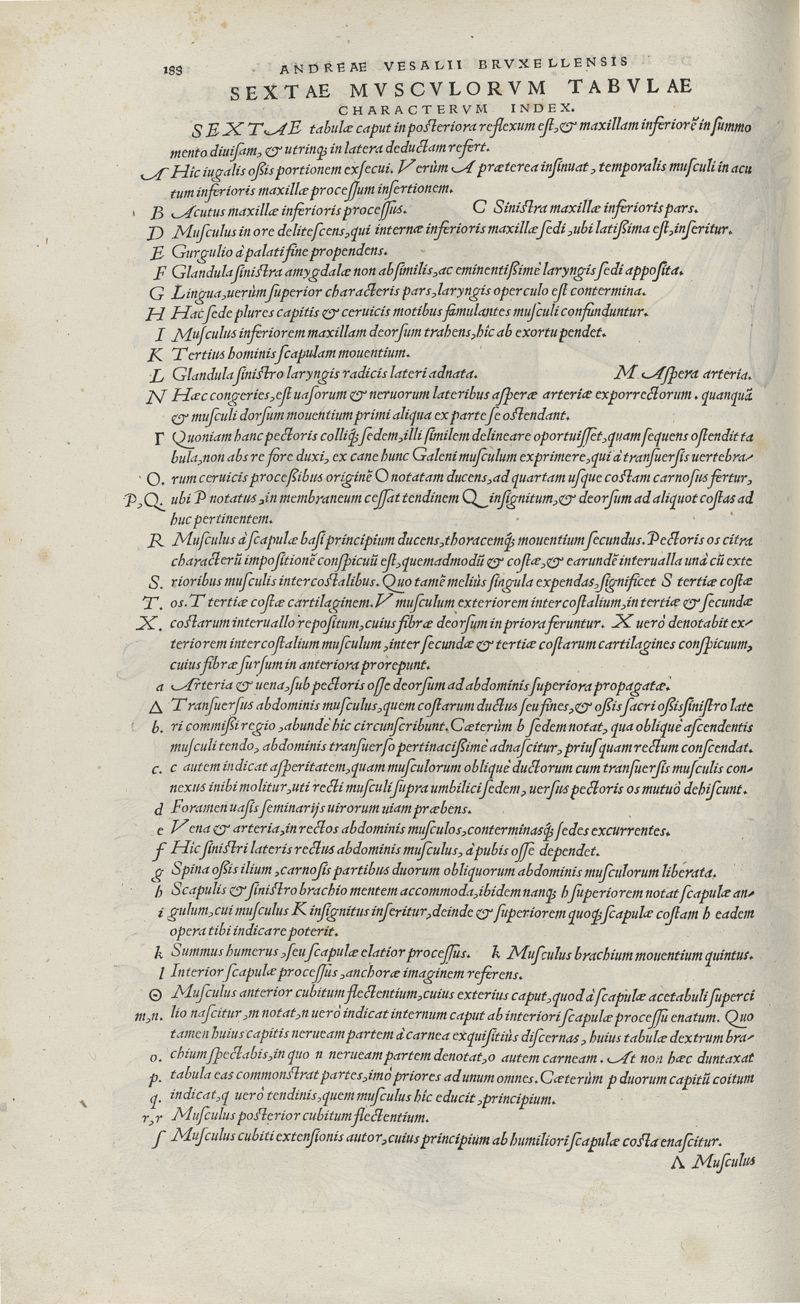 188 ANDREAE VESALII BRVXELLENSIS
SEXTAE MVSCVLORVM TABVLAE
CHARACTERVM INDEX.
SEXTAE tabulæ caput in posteriora reflexum est, & maxillam inferiorẽ in summo
mento diuisam, & utrinq; in latera deductam refert.
A Hic iugalis oßis portionem exsecui. Verùm A præterea insinuat, temporalis musculi in acu
tum inferioris maxillæ processum insertionem.
B Acutus maxillæ inferioris processus. C Sinistra maxillæ inferioris pars.
D Musculus in ore delitescens, qui internæ inferioris maxillæ sedi, ubi latißima est, inseritur.
E Gurgulio à palati fine propendens.
F Glandula sinistra amygdalæ non absimilis, ac eminentißimè laryngis sedi apposita.
G Lingua, uerùm superior characteris pars, laryngis operculo est contermina.
H Hac sede plures capitis & ceruicis motibus famulantes musculi confunduntur.
I Musculus inferiorem maxillam deorsum trahens, hîc ab exortu pendet.
K Tertius hominis scapulam mouentium.
L Glandula sinistro laryngis radicis lateri adnata. M Aspera arteria.
N Hæc congeries, est uasorum & neruorum lateribus asperæ arteriæ exporrectorum. quanquã
& musculi dorsum mouentium primi aliqua ex parte se ostendant.
Γ Quoniam hanc pectoris colliq; sedem, illi similem delineare oportuisset, quam sequens ostendit ta
bula, non abs re fore duxi, ex cane hunc Galeni musculum exprimere, qui à transuersis uertebra-
O. rum ceruicis proceßibus originẽ O notatam ducens, ad quartam usque costam carnosus fertur,
P, Q. ubi P notatus, in membraneum cessat tendinem Q insignitum, & deorsum ad aliquot costas ad
huc pertinentem.
R Musculus à scapulæ basi principium ducens, thoracemq; mouentium secundus. Pectoris os citra
characterũ impositionẽ conspicuũ est, quemadmodũ & costæ, & earundẽ interualla unà cũ exte
S. rioribus musculis intercostalibus. Quo tamẽ meliùs singula expendas, significet S tertiæ costæ
T. os. T tertiæ costæ cartilaginem. V musculum exteriorem intercostalium, in tertiæ & secundæ
X. costarum interuallo repositum, cuius fibræ deorsum in priora feruntur. X uerò denotabit ex-
teriorem intercostalium musculum, inter secundæ & tertiæ costarum cartilagines conspicuum,
cuius fibræ sursum in anteriora prorepunt.
a Arteria & uena, sub pectoris osse deorsum ad abdominis superiora propagatæ.
Δ Transuersus abdominis musculus, quem costarum ductus seu fines, & oßis sacri oßis sinistro late
b. ri commißi regio, abundè hîc circunscribunt. Cæterùm b sedem notat, qua obliquè ascendentis
musculi tendo, abdominis transuerso pertinacißimè adnascitur, priusquam rectum conscendat.
c. c autem indicat asperitatem, quam musculorum obliquè ductorum cum transuersis musculis con-
nexus inibi molitur, uti recti musculi supra umbilici sedem, uersus pectoris os mutuò dehiscunt.
d Foramen uasis seminarijs uirorum uiam præbens.
e Vena & arteria, in rectos abdominis musculos, conterminasq; sedes excurrentes.
f Hic sinistri lateris rectus abdominis musculus, à pubis osse dependet.
g Spina oßis ilium, carnosis partibus duorum obliquorum abdominis musculorum liberata.
h Scapulis & sinistro brachio mentem accommoda, ibidem nanq; h superiorem notat scapulæ an-
i gulum, cui musculus K insignitus inseritur, deinde & superiorem quoq; scapulæ costam h eadem
opera tibi indicare poterit.
k Summus humerus, seu scapulæ elatior processus. k Musculus brachium mouentium quintus.
l Interior scapulæ processus, anchoræ imaginem referens.
Θ Musculus anterior cubitum flectentium, cuius exterius caput, quod à scapulæ acetabuli superci
m, n. lio nascitur, m notat, n uerò indicat internum caput ab interiori scapulæ processu enatum. Quo
tamen huius capitis nerueam partem à carnea exquisitiùs discernas, huius tabulæ dextrum bra-
o. chium spectabis, in quo n nerueam partem denotat, o autem carneam. At non hæc duntaxat
p. tabula eas commonstrat partes, imò priores ad unum omnes. Cæterùm p duorum capitũ coitum
q. indicat, q uerò tendinis, quem musculus hic educit, principium.
r, r Musculus posterior cubitum flectentium.
ſ Musculus cubiti extensionis autor, cuius principium ab humiliori scapulæ costa enascitur.
Λ Musculus